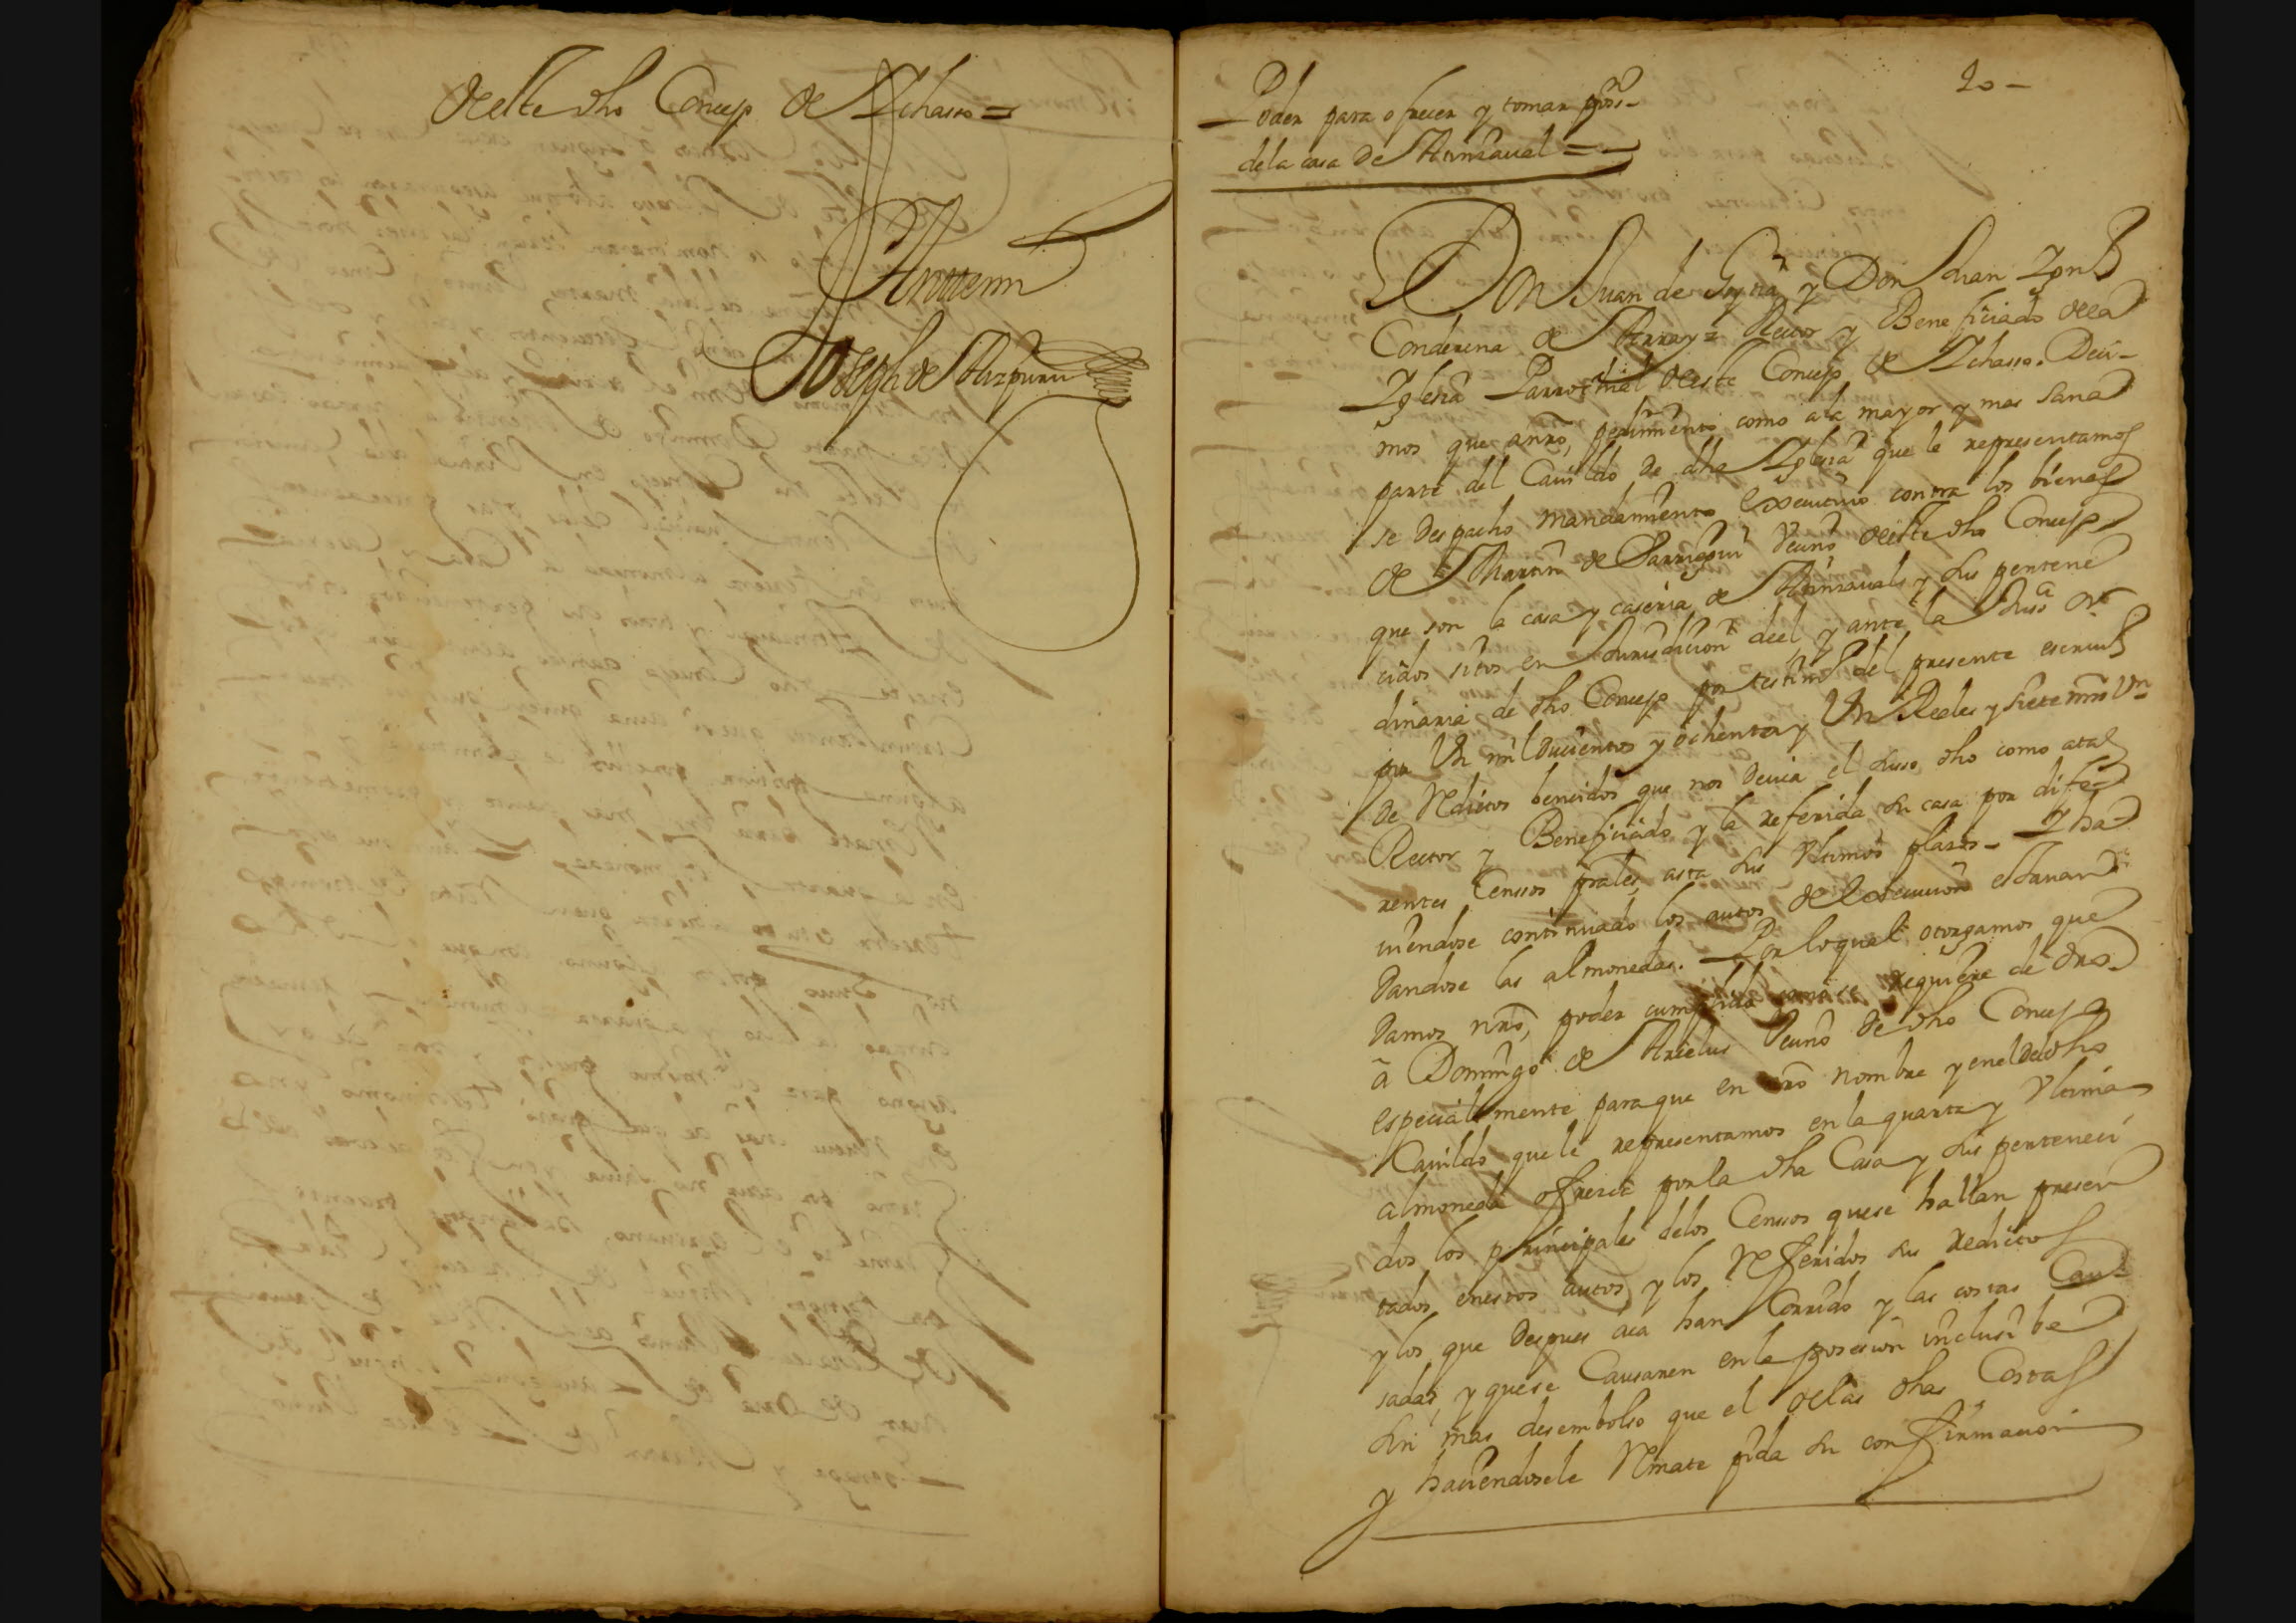 deste dho Concejo de Ichasso =
Ante mi
Joseph de Aizpuru
20 -
Poder para ofrecer y tomar poss.on
de la casa de Arinzaval =
Don Juan de y Don Juan Ign.o
Conderena de Array= Rector y Beneficiado dela
Iglesia Parrochial deste Concejo de Ichasso. Deci-
mos que a nro, pedimiento como a la mayor y mas sana
parte del Cavildo de dha Iglesia que le representamos
se despacho mandamiento executivo contra los bienes
de Martin de Sarriegui vecino deste dho Concejo
que son la casa y caseria de Arinzaval y sus pertene
cidos sitos en Jurisdicion del, y ante la Just.a or
dinaria de dho Concejo por testim.o del presente escriv.o
por Un mil Ducientos y ochenta y Un Reales y siete mrs Vn
de Reditos bencidos que nos devia el suso dho como atal
Rector y Beneficiado y la referida su casa por dife-
rentes Censsos prales, asta sus Ultimos plazos - Y ha-
viendose continuado los autos de execucion estavan
dandose las almonedas. Por lo qual otorgamos que
damos nro, poder cumplido como se requiere de dro.
á Domingo de Arielus vecino de dho Concejo
especialmente para que en nro nombre y en el de dho
Cavildo que le representamos en la quarta y Ultima
almoneda ofrezca por la dha Casa y sus perteneci
dos los principales delos Censsos que se hallan presen
tados en estos autos y los Referidos sus Reditos
y los que despues aca han Corrido y las costas Cau-
sadas, y que se Causaren en la posesion inclusibe
sin mas desembolso que el delas dhas Costas
y haciendosele Remate pida su confirmacion